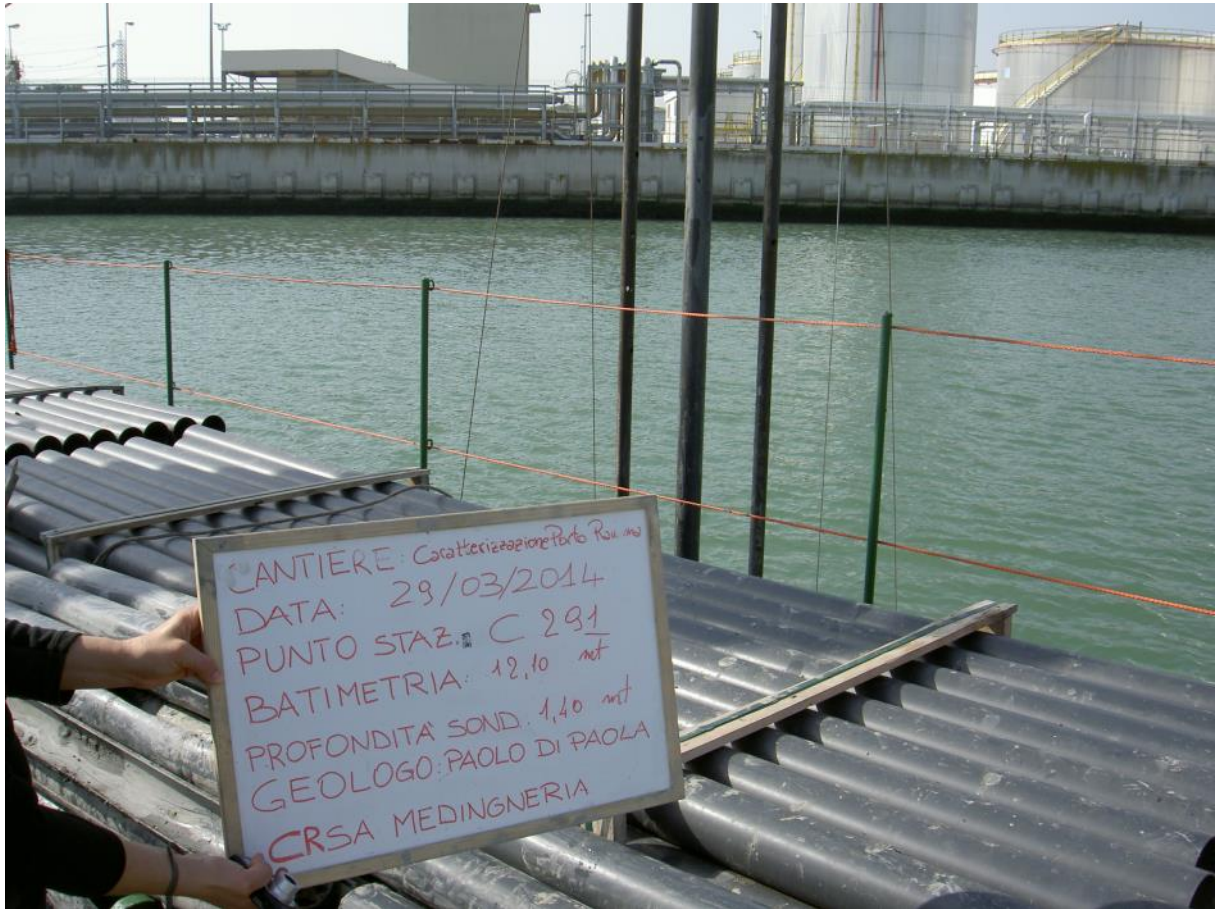 CANTIERE: Caratterizzazione Porto
DATA: 29/03/2014
PUNTO STAZ.: C 291
BATIMETRIA: 12,10 mt
PROFONDITÀ SOND. 1,40 mt
GEOLOGO: PAOLO DI PAOLA
CRSA MEDINGNERIA